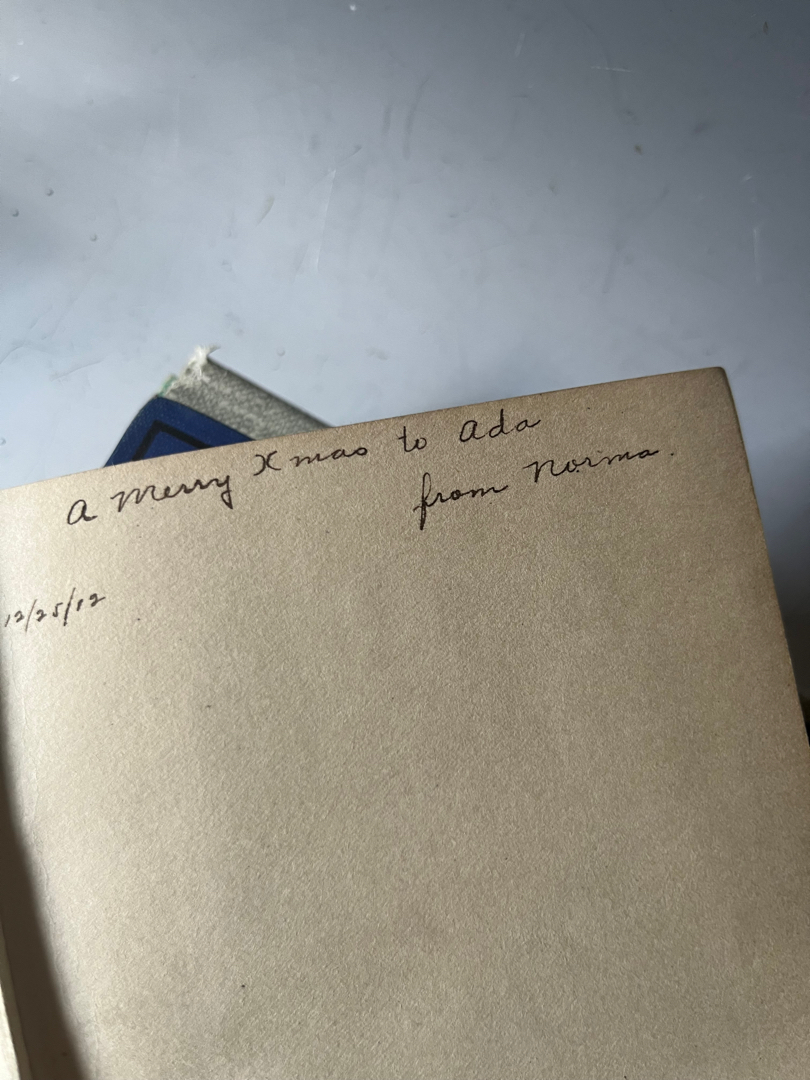 A Merry Xmas to Ada
from Norma.
12/25/12